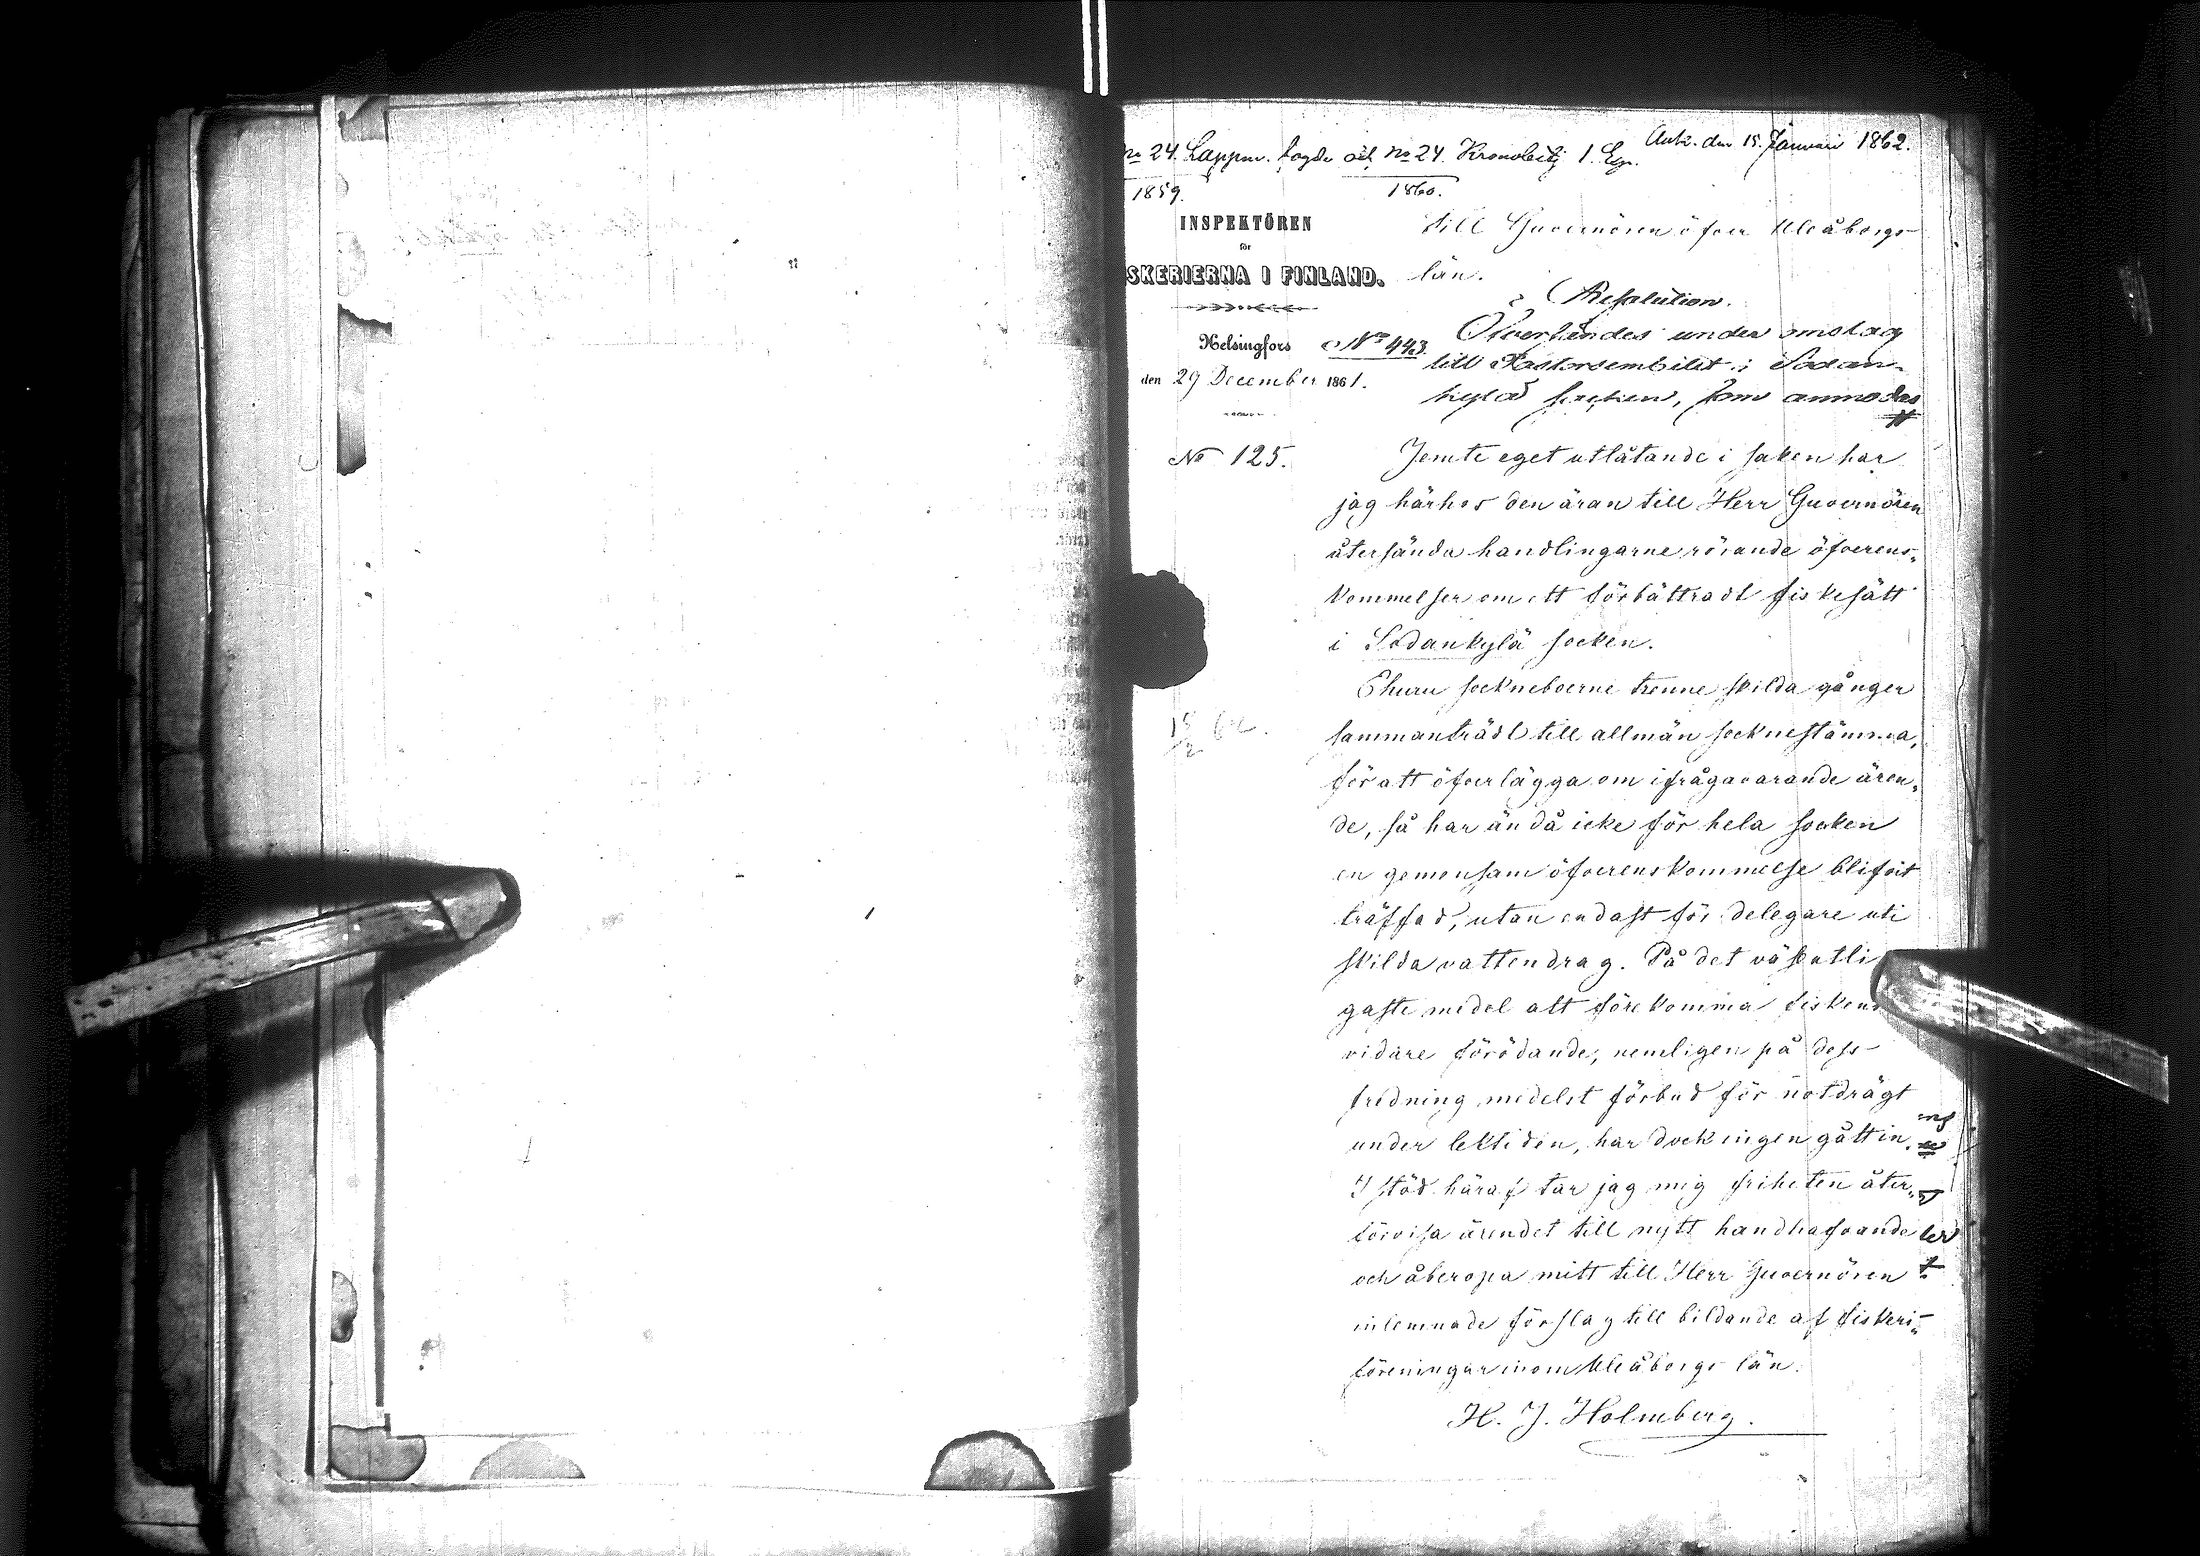 no 24. Lappm. fogde och no 24. Kronobetj 1. Exp.
Ank. den 15. Januari 1862.
1859. 1860.
INSPEKTÖREN
för
SKERIERNA I FINLAND.
Helsingfors
den 29 December 1861.
No 125.
Till Guvernören öfver Uleåborgs
län.
Resolution.
No 443.
Öfversändes under omslag
till Pastorsembetet i Sodan-
kylä socken, som anmodas
Jemte eget utlåtande i saken har
jag härhos den äran till Herr Guvernören
återsända handlingarne rörande öfverens-
kommelser om ett förbättradt fiskesätt
i Sodankylä socken.
Ehuru sockneboerne trenne skilda gånger
sammanträdt till allmän socknestämma,
för att öfverlägga om ifrågavarande ären-
de, så har ändå icke för hela socken
en gemensam öfverenskommelse blifvit
träffad, utan endast för delegare uti
skilda vattendrag. På det väsentli
gaste medel att förekomma fiskens
vidare förödande, nemligen på dess
fredning medelst förbud för notdrägt
under lektiden, har dock ingen gått in.
I stöd häraf tar jag mig friheten åter-
förvisa ärendet till nytt handhafvande
och åberopa mitt till Herr Guvernören
inlemnade förslag till bildande af fiskeri-
föreningar inom Uleåborgs län.
H. J. Holmberg.